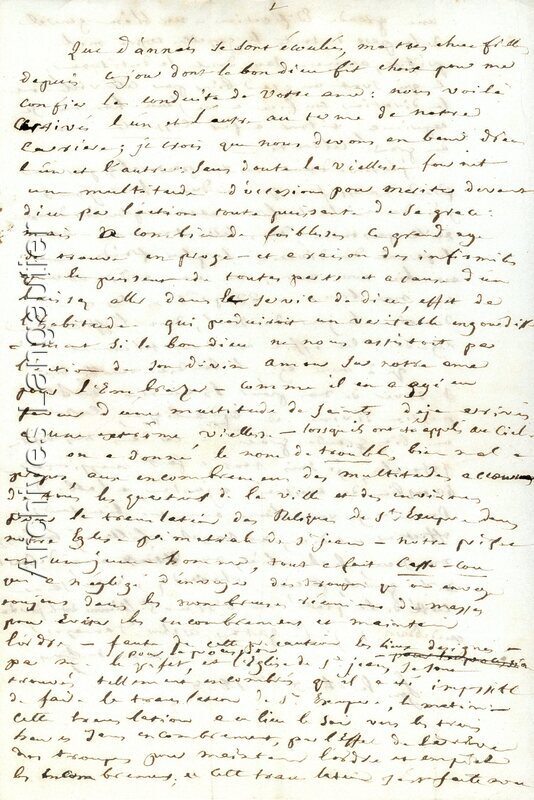 1
Que d'années se sont écoulées, ma tres chere fille
depuis ce jour dont le bon dieu fit choix pour me
confier la conduite de votre ame: nous voilà
arrivés l'un et l'autre au terme de notre
carriere; je crois que nous devons en benir dieu
l'un et l'autre: sans doute la viellesse fournit
une multitude d'occasions pour meriter devant
dieu par l'action toute puissante de sa grace:
mais combien de foiblesses ce grand age
trouve en proye - et a raison des infirmités
le pressent de toutes parts et a cause d'un
laisser aller dans le service de dieu, effet de
l'habitude qui produiroit un veritable engourdis
-ment si le bon dieu ne nous assistoit par
l'action de son divin amour sur notre ame
pour l'Embrazer - comme il en a agi en
faveur d'une multitude de saints deja arrivés
a une extrême viellesse - lorsqu'ils ont été appelés au Ciel -
on a donné le nom de troubles bien mal a
propos, aux encombremens des multitudes accourues
de tous les quartiers de la ville et des environs
pour la translation des Reliques de St Exupere dans
notre Eglise primatiale de St jean - notre préfet
jeune homme, tout a fait Casse-Cou
qui a negligé d'envoyer des troupes qu'on envoye
toujours dans les nombreuses réunions de masses
pour Eviter les encombremens et maintenir
l'ordre - faute de cette précaution les lieux designés -
pour la procession
par le préfet, et l'Eglise de St jean, se sont
trouvés tellement encombrés qu'il a été impossible
de faire la translation de St Exupere, le matin -
cette translation a eu lieu le soir vers les trois
heures sans encombrement, par l'effet de l'arrivée
des troupes pour maintenir l'ordre et empecher
les encombremens; et cette translation s'est faite
Archives-Lengamier